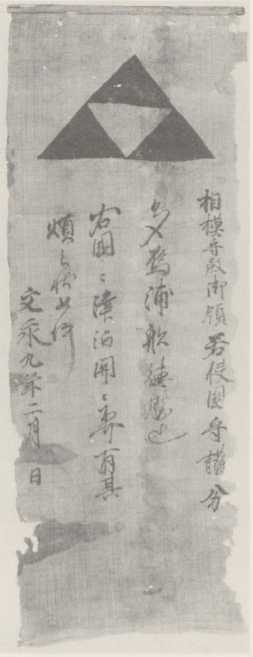 相模守殿御領若狹國守護分
多烏浦船徳勝也
右國々津泊関々不可有其
煩之状如件
文永九年二月　日